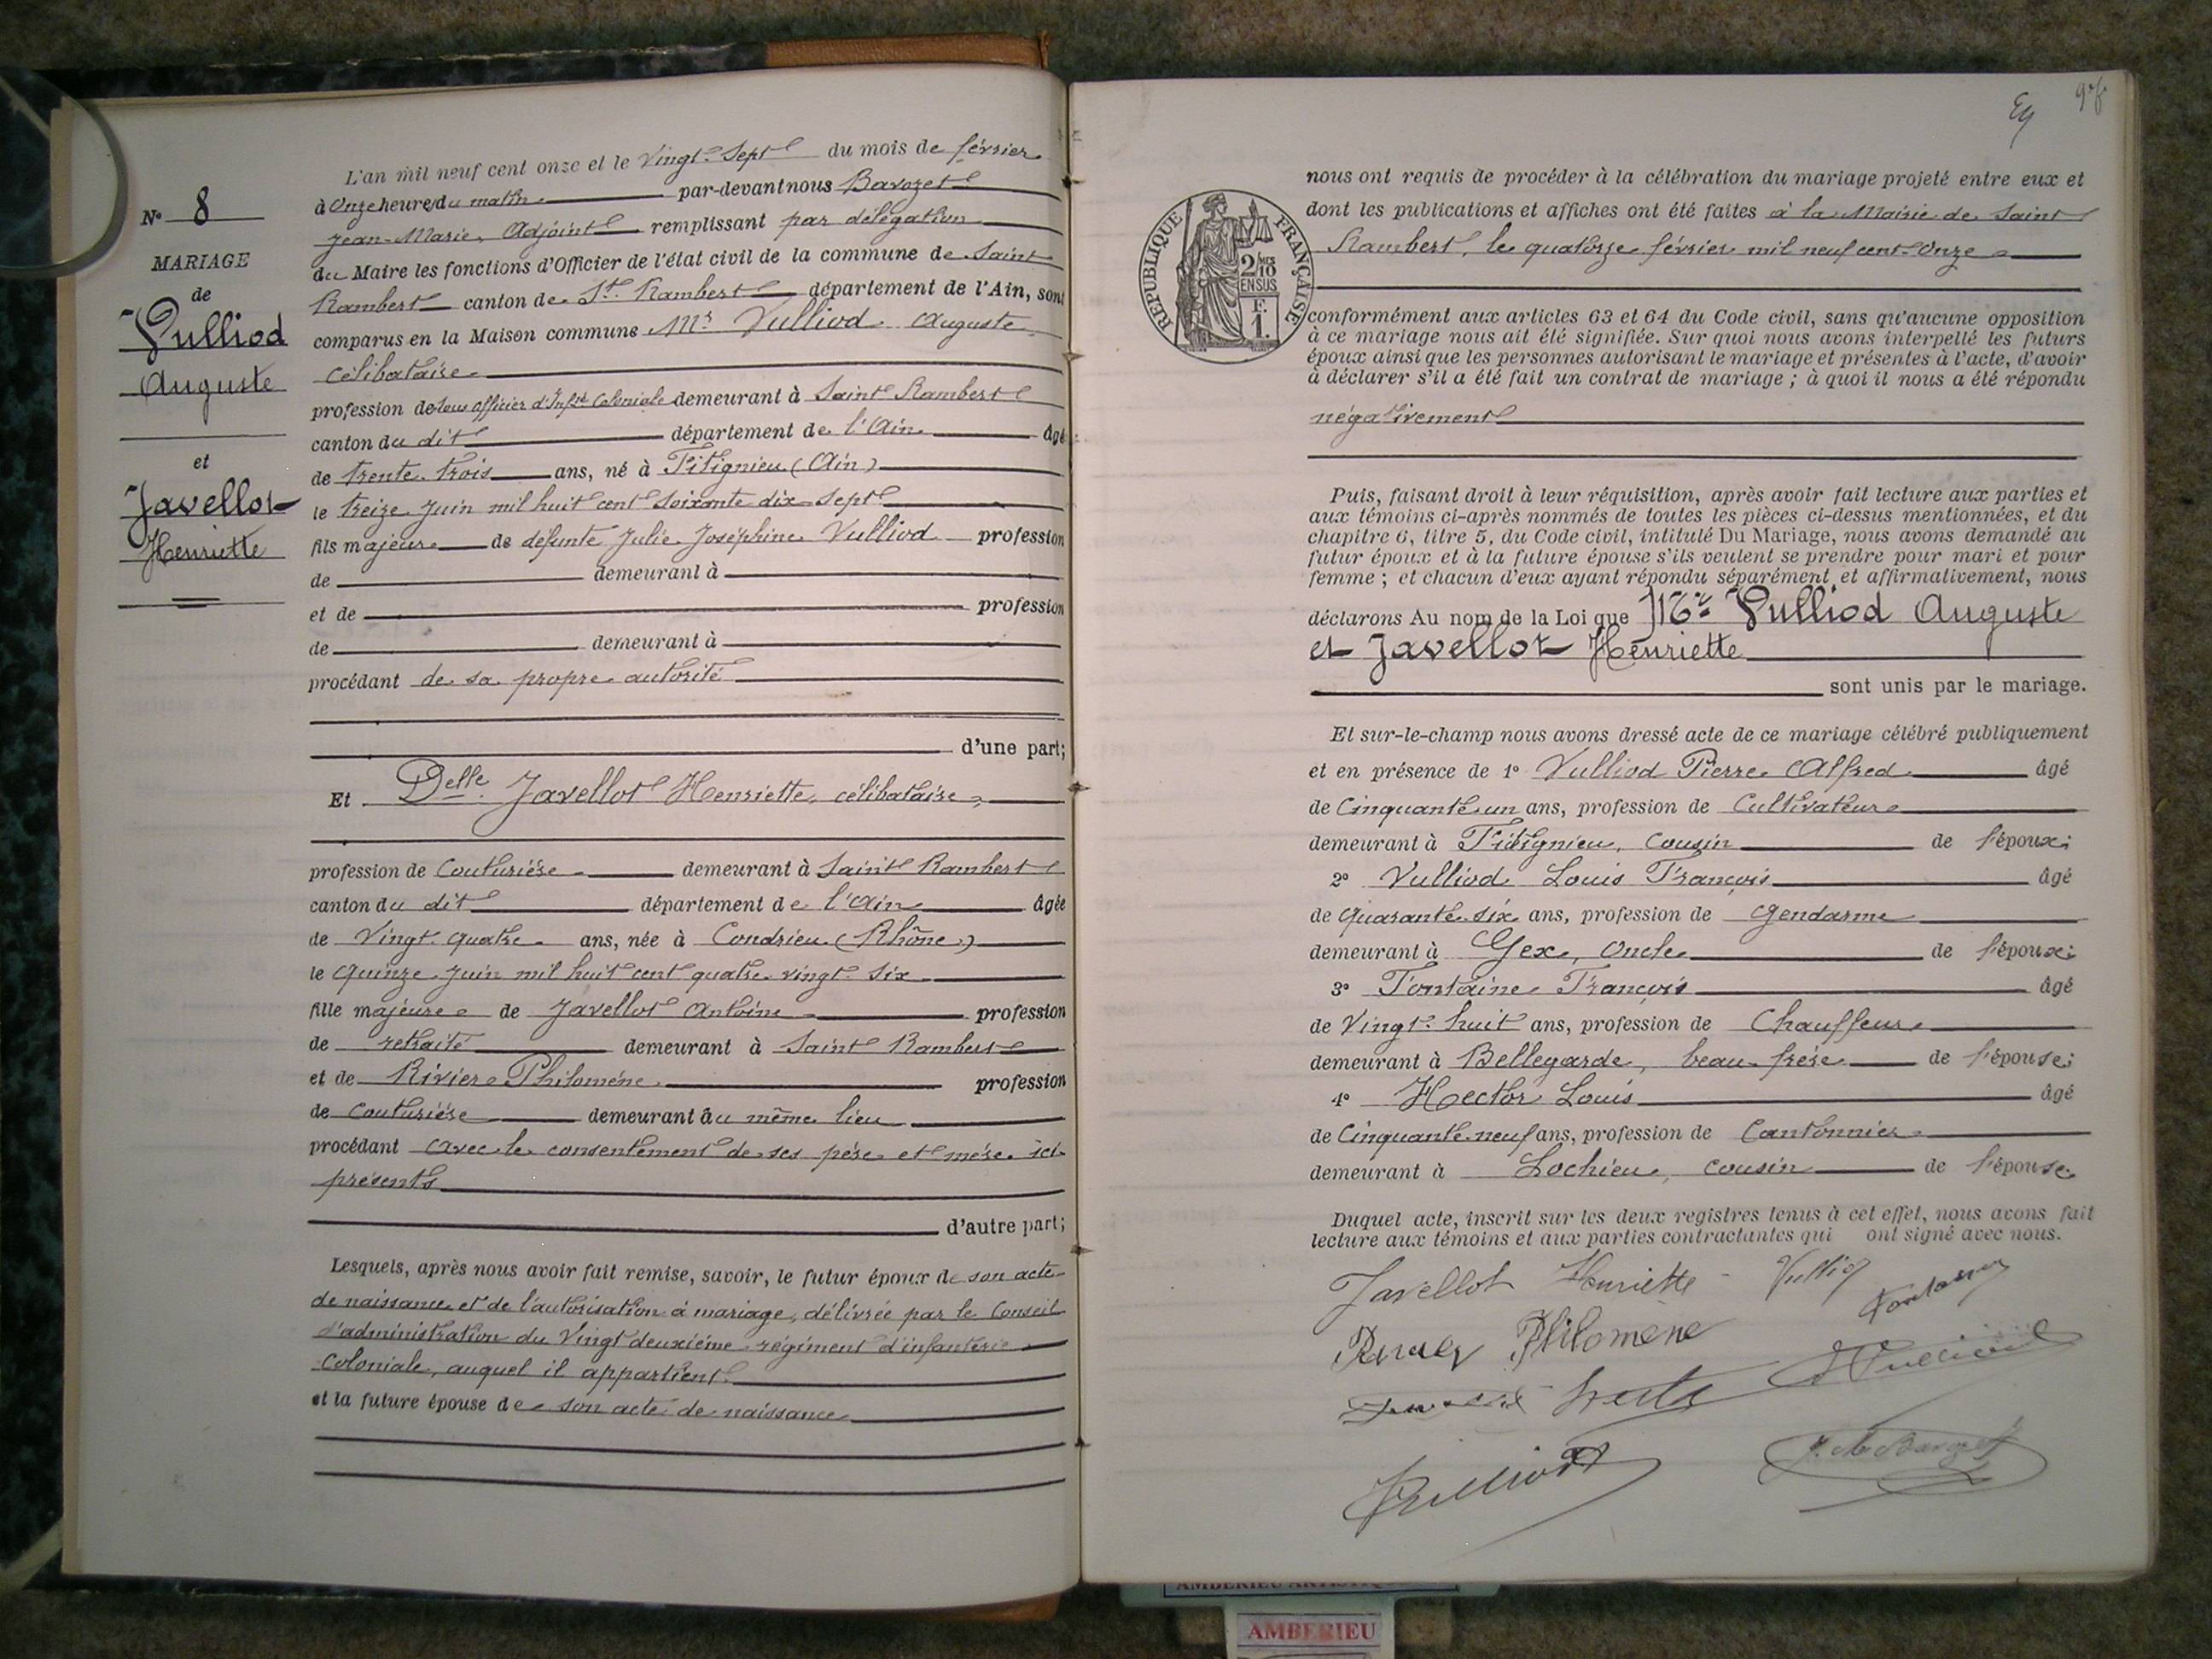 N° 8
MARIAGE
de
Vulliod
Auguste
et
Javellot
Henriette
L'an mil neuf cent onze et le Vingt-Sept du mois de février
à Onze heures du matin par-devant nous Bavozet
Jean-Marie, Adjoint remplissant par délégation
du Maire les fonctions d'Officier de l'état civil de la commune de Saint
Rambert canton de St. Rambert département de l'Ain, sont
comparus en la Maison commune Mr Vulliod Auguste
célibataire
profession de Sous officier d'Infrie Coloniale demeurant à Saint Rambert
canton du dit département de l'Ain âgé
de trente trois ans, né à Fitignieu (Ain)
le treize Juin mil huit cent soixante dix-sept
fils majeur de défunte Julie Joséphine Vulliod profession
de demeurant à
et de profession
de demeurant à
procédant de sa propre autorité
d'une part;
Et Delle Javellot Henriette, célibataire,
profession de Couturière demeurant à Saint Rambert
canton du dit département de l'Ain âgée
de Vingt-quatre ans, née à Condrieu (Rhône)
le quinze Juin mil huit cent quatre vingt-six
fille majeure de Javellot Antoine profession
de retraité demeurant à Saint Rambert
et de Rivier Philomène profession
de couturière demeurant au même lieu
procédant avec le consentement de ses père et mère ici
présents
d'autre part;
Lesquels, après nous avoir fait remise, savoir, le futur époux de son acte
de naissance et de l'autorisation à mariage, délivrée par le Conseil
d'administration du Vingt deuxième régiment d'infanterie
Coloniale, auquel il appartient
et la future épouse de son acte de naissance
RÉPUBLIQUE FRANÇAISE
2/10
EN SUS
F.
1.
nous ont requis de procéder à la célébration du mariage projeté entre eux et
dont les publications et affiches ont été faites à la Mairie de Saint
Rambert, le quatorze février mil neuf cent-Onze
conformément aux articles 63 et 64 du Code civil, sans qu'aucune opposition
à ce mariage nous ait été signifiée. Sur quoi nous avons interpellé les futurs
époux ainsi que les personnes autorisant le mariage et présentes à l'acte, d'avoir
à déclarer s'il a été fait un contrat de mariage ; à quoi il nous a été répondu
négativement
Puis, faisant droit à leur réquisition, après avoir fait lecture aux parties et
aux témoins ci-après nommés de toutes les pièces ci-dessus mentionnées, et du
chapitre 6, titre 5, du Code civil, intitulé Du Mariage, nous avons demandé au
futur époux et à la future épouse s'ils veulent se prendre pour mari et pour
femme ; et chacun d'eux ayant répondu séparément et affirmativement, nous
déclarons Au nom de la Loi que Mr Vulliod Auguste
et Javellot Henriette
sont unis par le mariage.
Et sur-le-champ nous avons dressé acte de ce mariage célébré publiquement
et en présence de 1° Vulliod Pierre Alfred âgé
de Cinquante un ans, profession de Cultivateur
demeurant à Fitignieu, cousin de l'époux;
2° Vulliod Louis François âgé
de quarante six ans, profession de Gendarme
demeurant à Gex, Oncle de l'époux;
3° Fontaine François âgé
de Vingt-huit ans, profession de Chauffeur
demeurant à Bellegarde, beau frère de l'épouse;
4° Hector Louis âgé
de Cinquante-neuf ans, profession de Cantonnier
demeurant à Lochieu, cousin de l'épouse
Duquel acte, inscrit sur les deux registres tenus à cet effet, nous avons fait
lecture aux témoins et aux parties contractantes qui ont signé avec nous.
Javellot Henriette Vulliod
Philomène
AMBERIEU